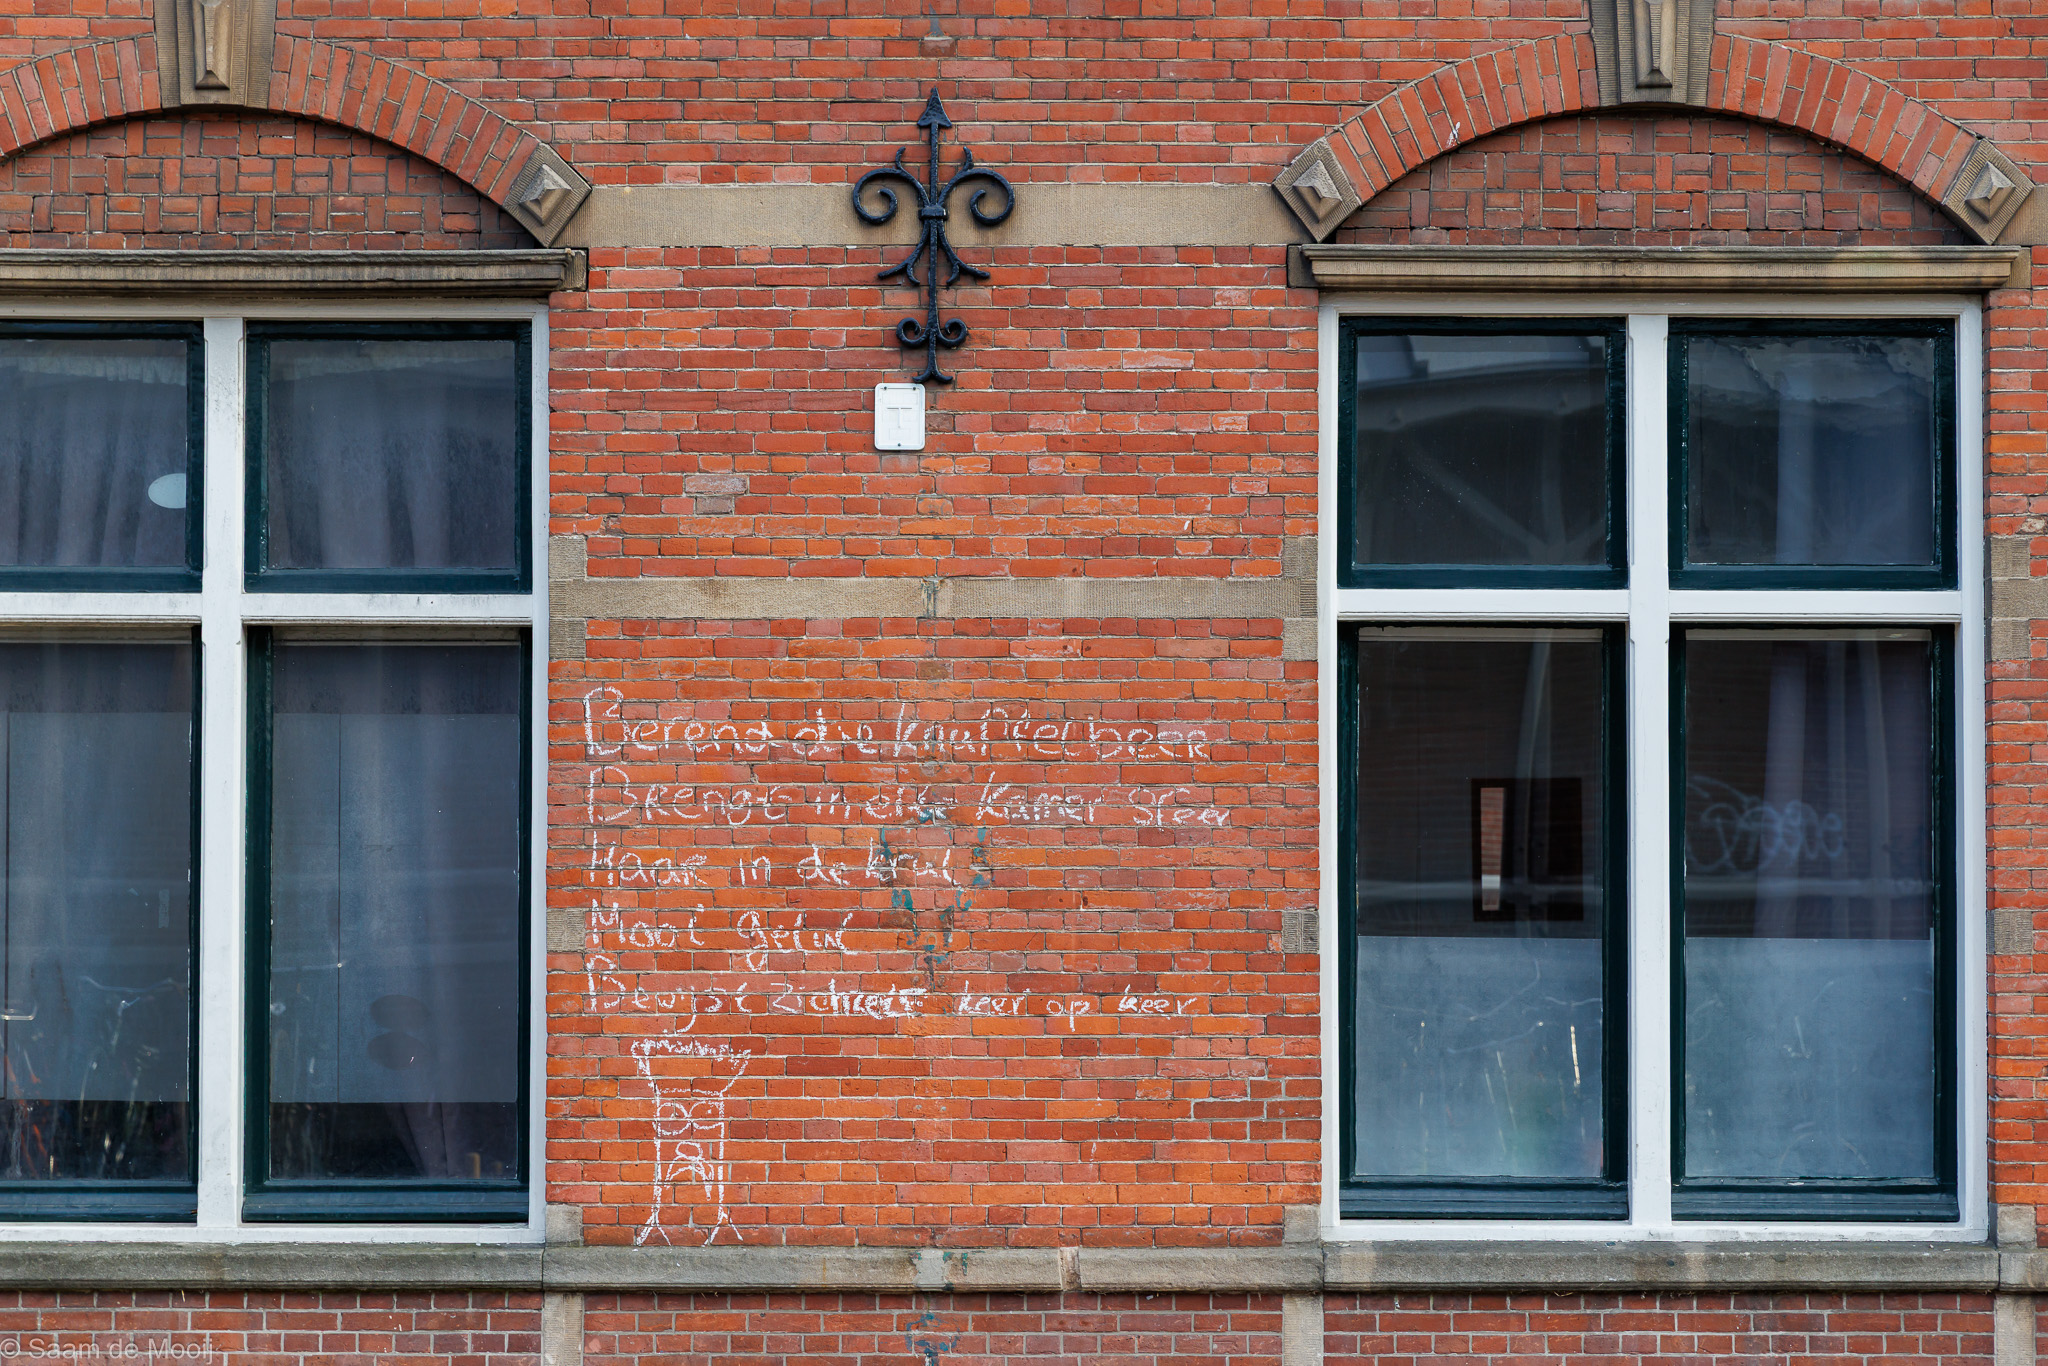 T
Berend die knuffelbeer
Brengt in elke kamer sfeer
Haar in de krul
Mooi
Bewijst zichzelf keer op keer
© Saam de Mooij